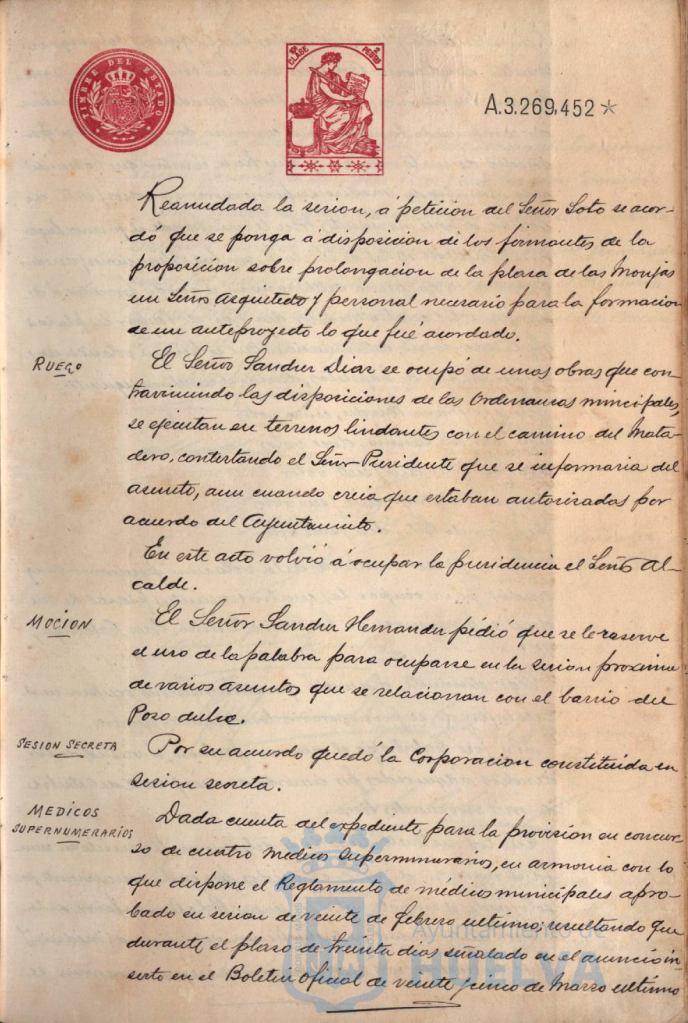 TIMBRE DEL ESTADO
CLASE
A.3.269.452
Reanudada la sesion, á peticion del Señor Soto se acor-
dó que se ponga á disposicion de los firmantes de la
proposicion sobre prolongacion de la plaza de las Monjas
un Señor Arquitecto y personal necesario para la formacion
de un anteproyecto lo que fué acordado.
RUEGO
El Señor Sanchez Diaz se ocupó de unas obras que con
traviniendo las disposiciones de las Ordenanzas municipales,
se ejecutan en terrenos lindantes con el camino del Mata-
dero, contestando el Señor Presidente que se informaria del
asunto, aun cuando creia que estaban autorizadas por
acuerdo del Ayuntamiento.
En este acto volvió á ocupar la presidencia el Señor Al-
calde.
MOCION
El Señor Sanchez Hernandez pidió que se le reserve
el uso de la palabra para ocuparse en la sesion proxima
de varios asuntos que se relacionan con el barrio del
Pozo dulce.
SESION SECRETA
Por su acuerdo quedó la Corporacion constituida en
sesion secreta.
MEDICOS
SUPERNUMERARIOS
Dada cuenta del expediente para la provision en concur-
so de cuatro medicos supernumerarios, en armonia con lo
que dispone el Reglamento de médicos municipales apro-
bado en sesion de veinte de febrero ultimo; resultando que
durante el plazo de treinta dias señalado en el anuncio in-
serto en el Boletin Oficial de veinte y cinco de Marzo ultimo
Ayuntamiento de
HUELVA